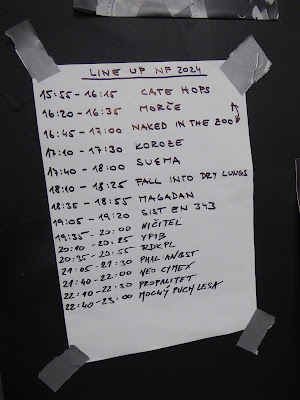 LINE UP NF 2024
15:55 - 16:15 CATE HOPS
16:20 - 16:35 MORČE
16:45 - 17:00 NAKED IN THE ZOO
17:10 - 17:30 KOROZE
17:40 - 18:00 SUEMA
18:10 - 18:25 FALL INTO DRY LUNGS
18:35 - 18:55 MAGADAN
19:05 - 19:20 SIST EN 343
19:35 - 20:00 NIČITEL
20:10 - 20:25 YPIB
20:35 - 20:55 RDKPL
21:05 - 21:30 PHAL-ANGST
21:40 - 22:00 NEO CYMEX
22:10 - 22:30 PROPALITET
22:40 - 23:00 MOCNÝ PUCH LESA